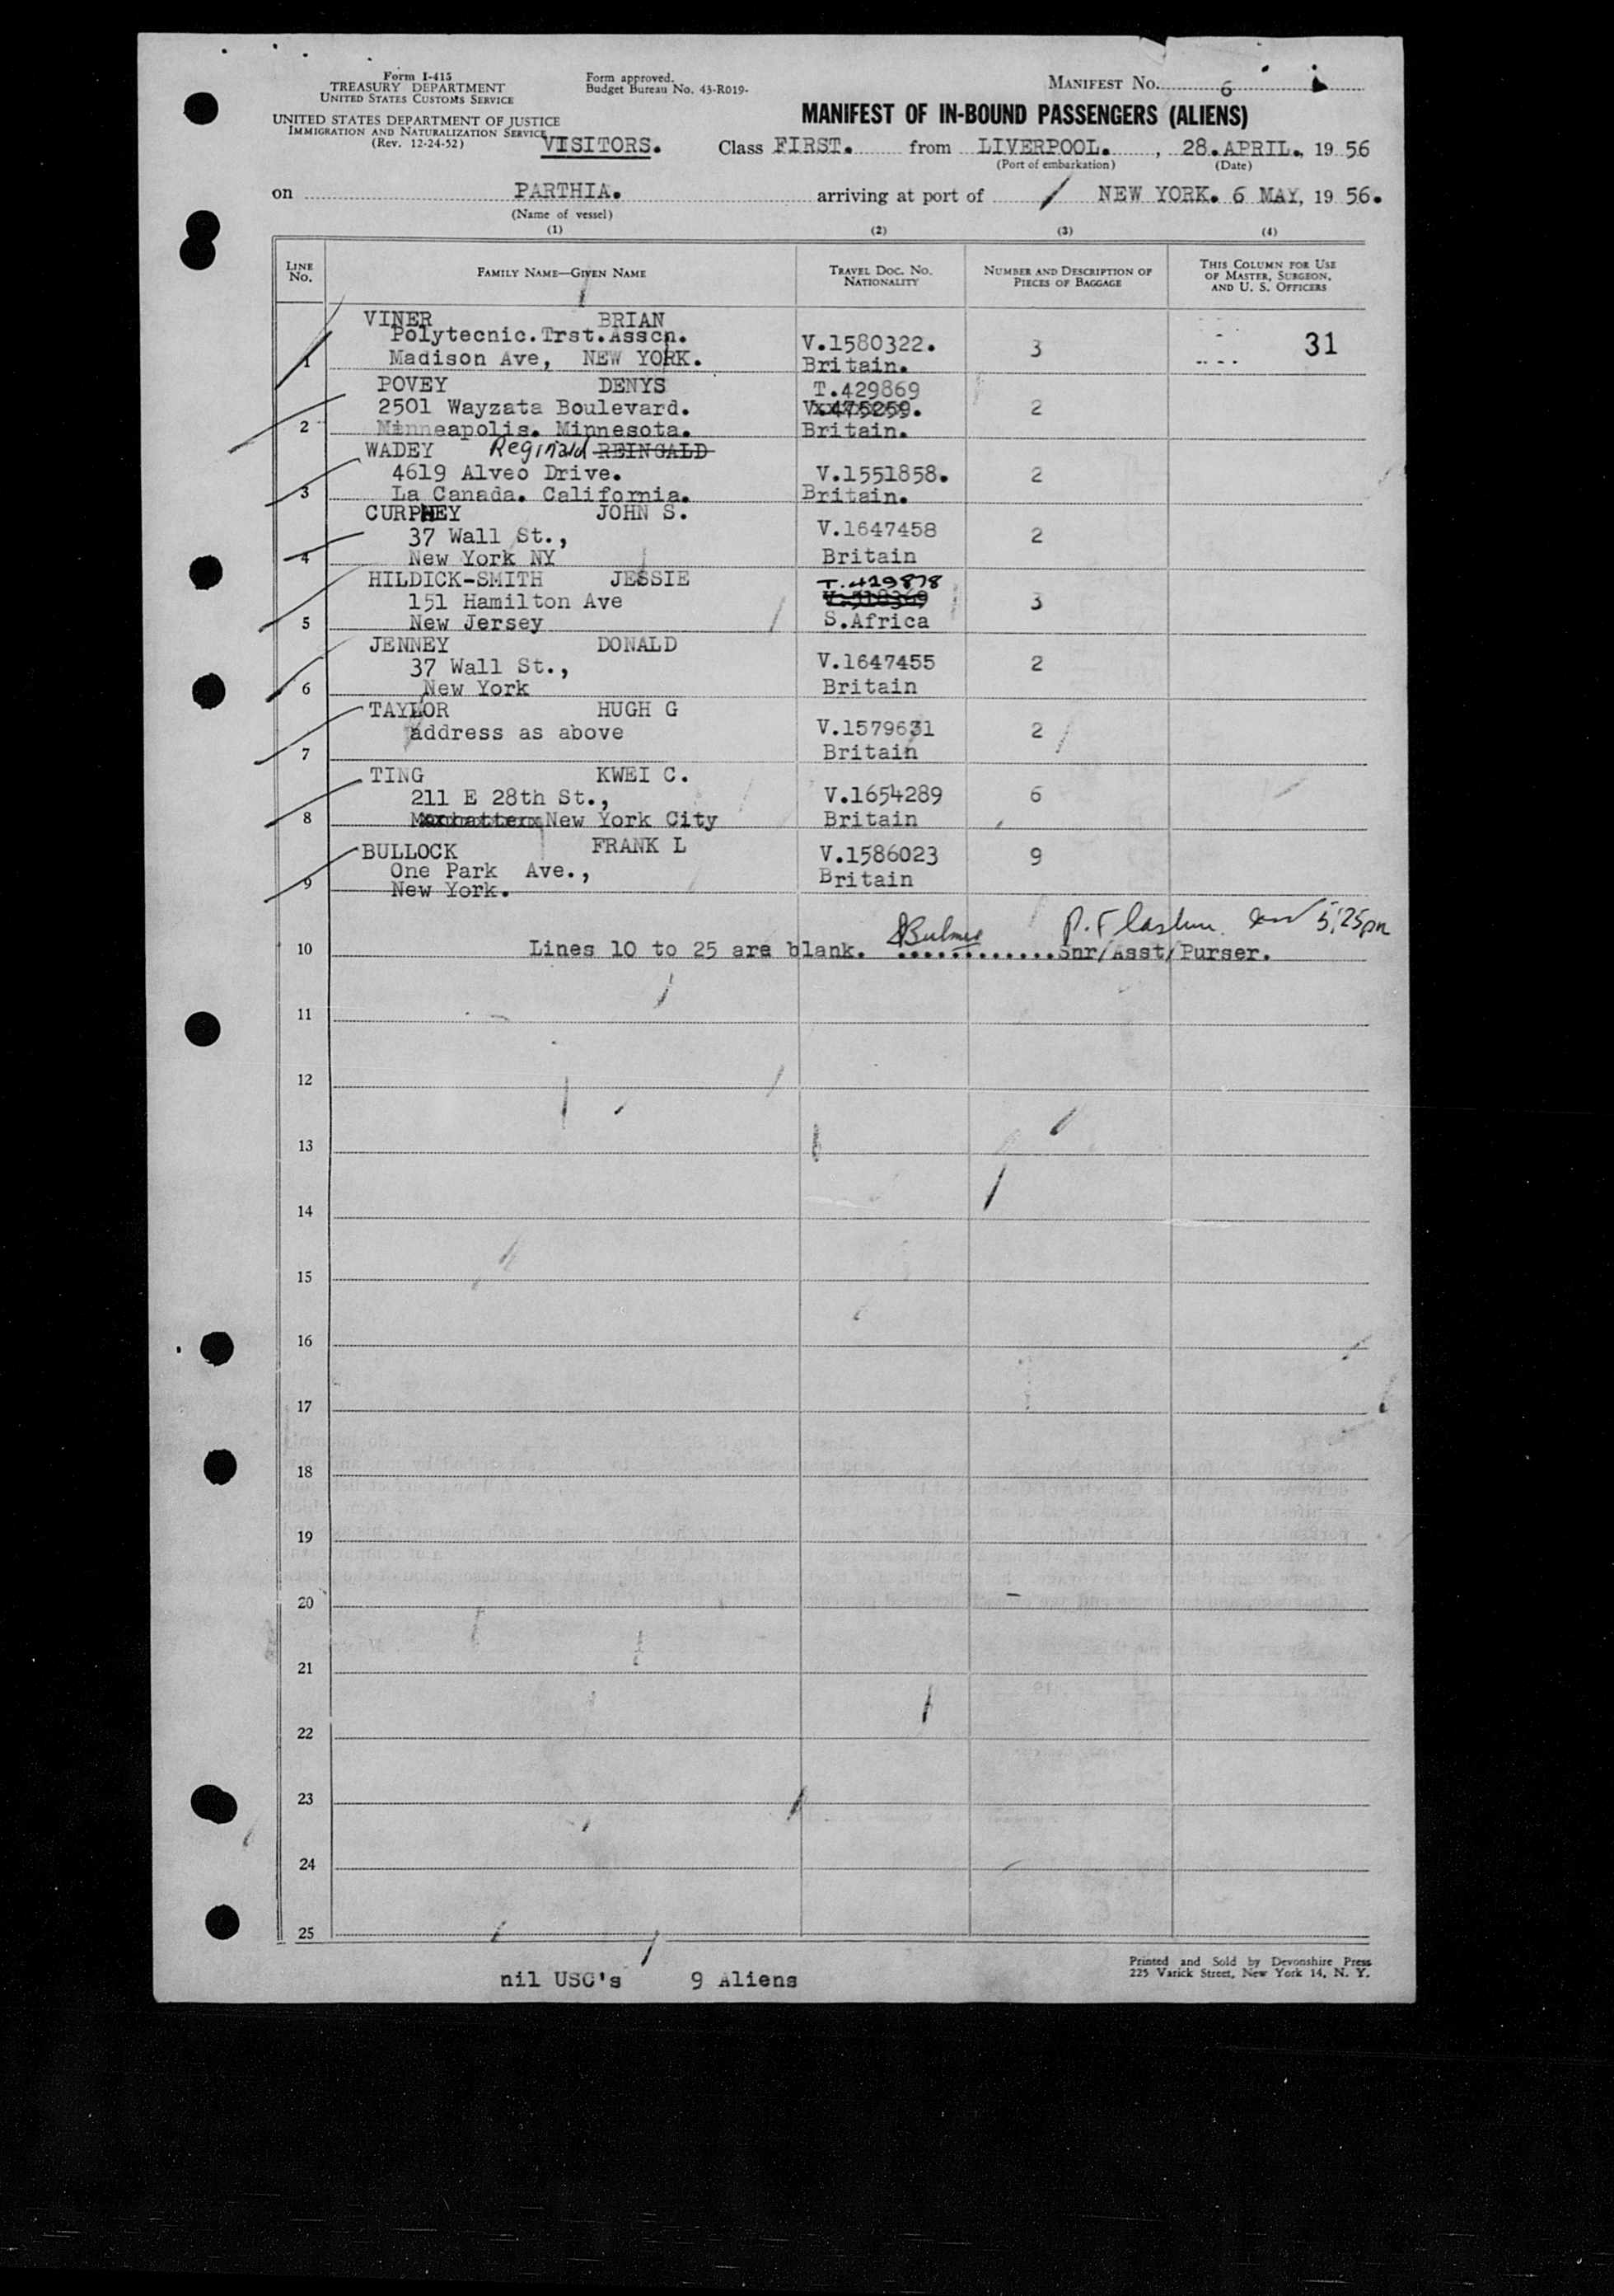 Form I-415
TREASURY DEPARTMENT
UNITED STATES CUSTOMS SERVICE
UNITED STATES DEPARTMENT OF JUSTICE
IMMIGRATION AND NATURALIZATION SERVICE
(Rev. 12-24-52)
Form approved.
Budget Bureau No. 43-R019-
MANIFEST NO. 6
MANIFEST OF IN-BOUND PASSENGERS (ALIENS)
VISITORS. Class FIRST. from LIVERPOOL. , 28.APRIL., 19 56
(Port of embarkation) (Date)
on PARTHIA. arriving at port of NEW YORK. 6 MAY, 19 56.
(Name of vessel)
(1) (2) (3) (4)
LINE NO. FAMILY NAME—GIVEN NAME TRAVEL DOC. NO. NATIONALITY NUMBER AND DESCRIPTION OF PIECES OF BAGGAGE THIS COLUMN FOR USE OF MASTER, SURGEON, AND U. S. OFFICERS
VINER BRIAN
Polytecnic.Trst.Asscn. V.1580322. 3 31
1 Madison Ave, NEW YORK. Britain.
POVEY DENYS T.429869
2501 Wayzata Boulevard. V.475259. 2
2 Minneapolis. Minnesota. Britain.
WADEY Reginald REINGALD
4619 Alveo Drive. V.1551858. 2
3 La Canada. California. Britain.
CURPHEY JOHN S.
37 Wall St., V.1647458 2
4 New York NY Britain
HILDICK-SMITH JESSIE T.429878
151 Hamilton Ave V.510369 3
5 New Jersey S.Africa
JENNEY DONALD
37 Wall St., V.1647455 2
6 New York Britain
TAYLOR HUGH G
address as above V.1579631 2
7 Britain
TING KWEI C.
211 E 28th St., V.1654289 6
8 New York City Britain
BULLOCK FRANK L
One Park Ave., V.1586023 9
9 New York. Britain
5:25pm
10 Lines 10 to 25 are blank. ............Snr/Asst/Purser.
11
12
13
14
15
16
17
18
19
20
21
22
23
24
25
nil USC's 9 Aliens
Printed and Sold by Devonshire Press
225 Varick Street, New York 14, N. Y.